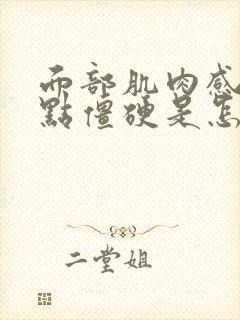 而部肌肉感
點僵硬是怎
二堂姐